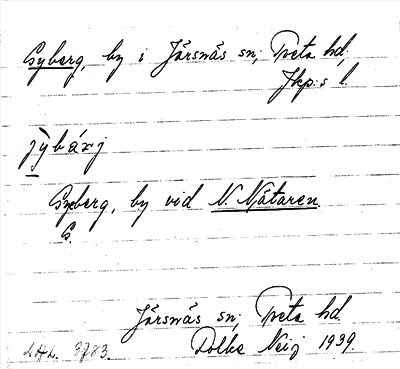 Gyberg, by i Järsnäs sn; Tveta hd;
Jkp:s l.
jỳbárj
Gyberg, by vid N. Nätaren.
G.
Järsnäs sn; Tveta hd.
1939.
3783.